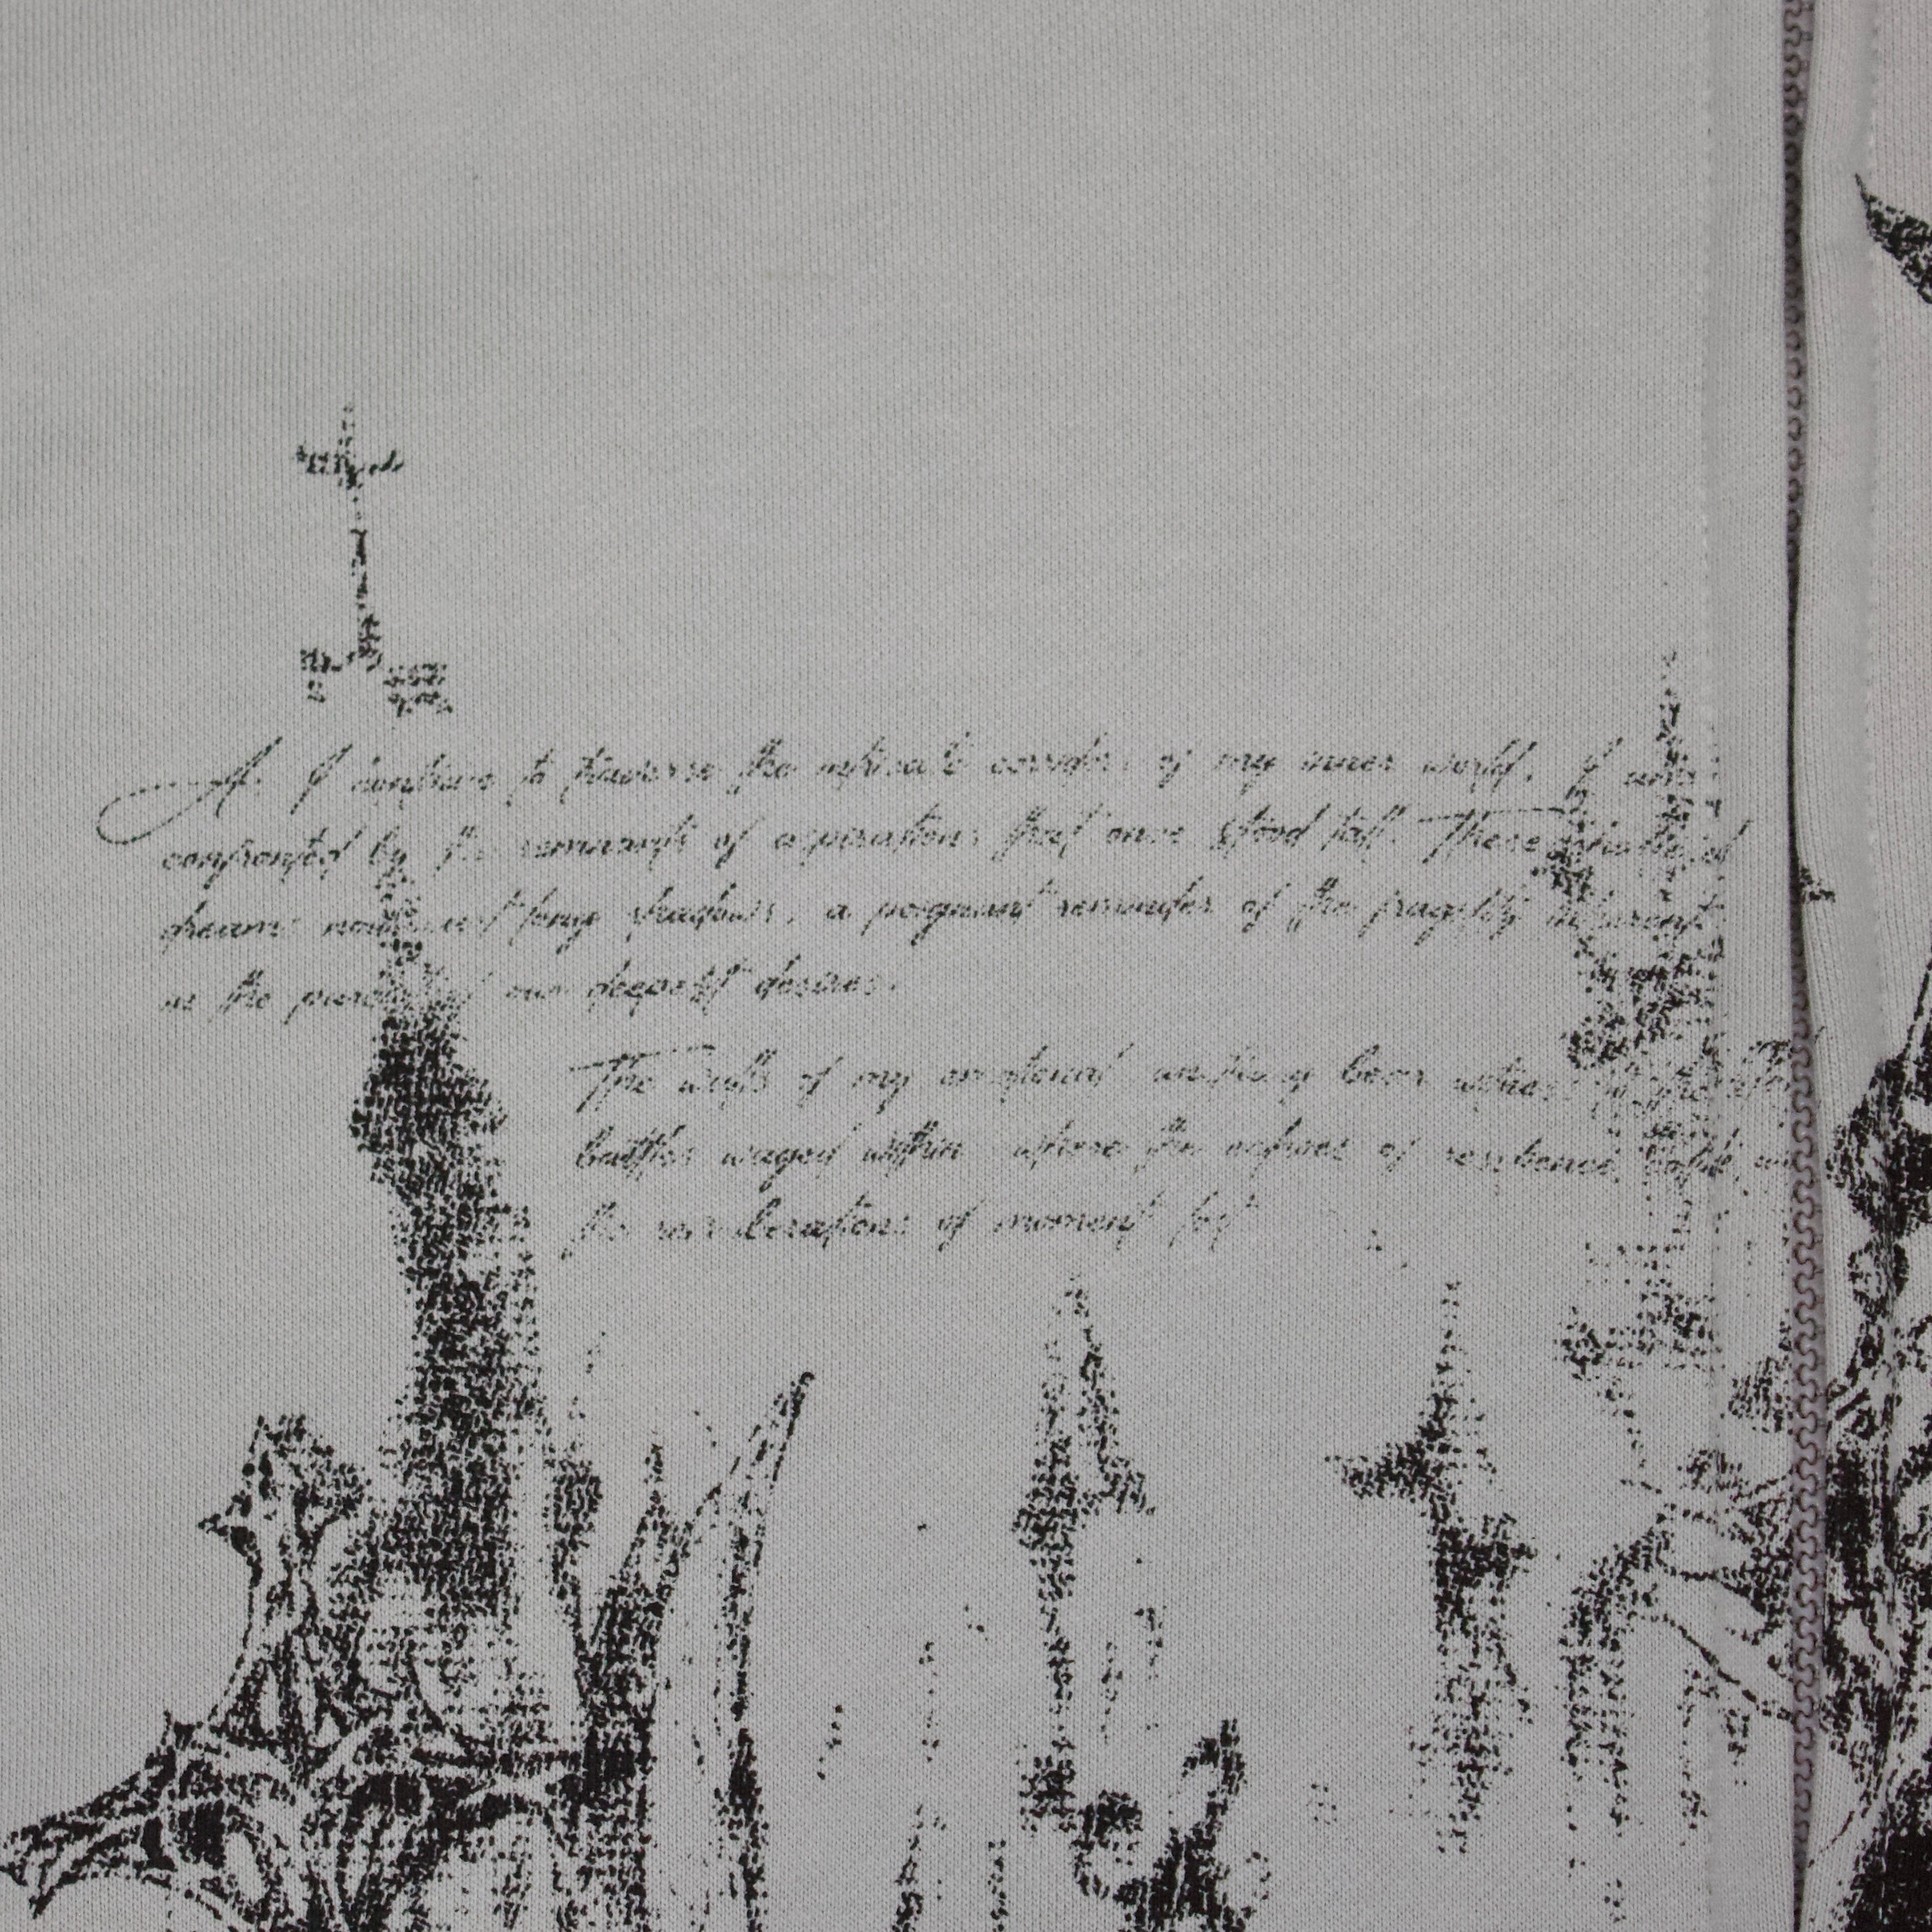 As I continue to traverse the intricate corridors of my inner world, I am
confronted by the remnants of aspirations that once stood tall. These shattered
dreams now cast long shadows, a poignant reminder of the fragility inherent
in the pursuit of our deepest desires.
The walls of my emotional anatomy bear witness of the
battles waged within where the echoes of resilience
the reverberations of moment lost